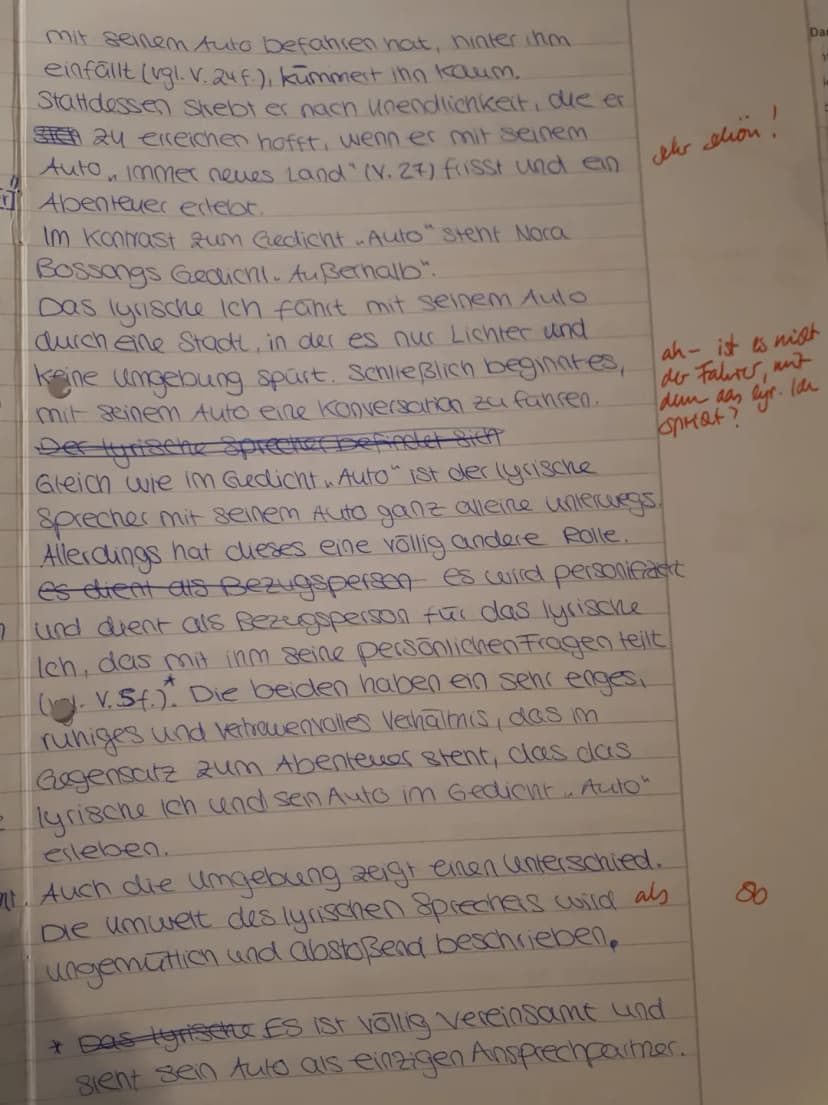 mit seinem Auto befahren hat, hinter ihm
einfällt (vgl. V. 24f.), kümmert ihn kaum.
Stattdessen strebt er nach Unendlichkeit, die er
zu erreichen hofft, wenn er mit seinem
Auto „immer neues Land" (V. 27) frisst und ein
Abenteuer erlebt.
sehr schön!
Im Kontrast zum Gedicht „Auto" steht Nora
Bossongs Gedicht „Außerhalb".
Das lyrische Ich fährt mit seinem Auto
durch eine Stadt, in der es nur Lichter und
keine Umgebung spürt. Schließlich beginnt es,
mit seinem Auto eine Konversation zu führen.
ah - ist es nicht
der Fahrer, mit
dem das lyr. Ich
spricht?
Der lyrische Sprecher befindet sich
Gleich wie im Gedicht „Auto" ist der lyrische
Sprecher mit seinem Auto ganz alleine unterwegs.
Allerdings hat dieses eine völlig andere Rolle.
es dient als Bezugsperson es wird personifiziert
und dient als Bezugsperson für das lyrische
Ich, das mit ihm seine persönlichen Fragen teilt
(vgl. V. 5f.).* Die beiden haben ein sehr enges,
ruhiges und vertrauenvolles Verhältnis, das im
Gegensatz zum Abenteuer steht, das das
lyrische Ich und sein Auto im Gedicht „Auto"
erleben.
Auch die Umgebung zeigt einen Unterschied.
Die Umwelt des lyrischen Sprechers wird als
ungemütlich und abstoßend beschrieben.
* Das lyrische Es ist völlig vereinsamt und
sieht sein Auto als einzigen Ansprechpartner.